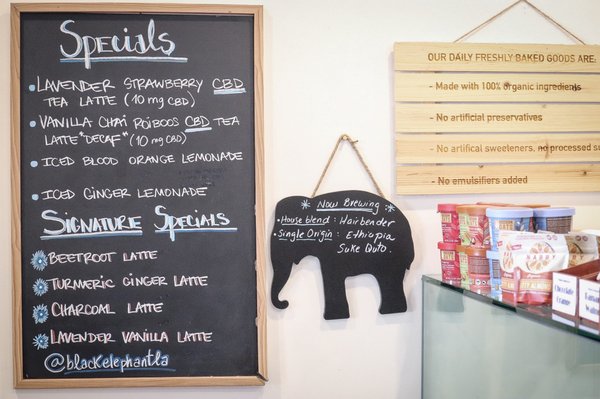 Specials
LAVENDER STRAWBERRY CBD
TEA LATTE (10 mg CBD)
VANILLA CHAI ROIBOOS CBD TEA
LATTE "DECAF" (10 mg CBD)
ICED BLOOD ORANGE LEMONADE
ICED GINGER LEMONADE
SIGNATURE SPECIALS
BEETROOT LATTE
TURMERIC GINGER LATTE
CHARCOAL LATTE
LAVENDER VANILLA LATTE
@blackelephantla
Now Brewing
House blend: Hairbender
Single Origin: Ethiopia
Suke Quto.
OUR DAILY FRESHLY BAKED GOODS ARE:
- Made with 100% organic ingredients
- No artificial preservatives
- No artificial sweeteners, no processed su
- No emulsifiers added
Chocolate